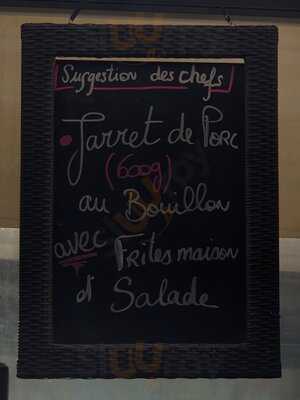 Suggestion des chefs
Jarret de Porc
(600g)
au Bouillon
avec Frites maison
et Salade